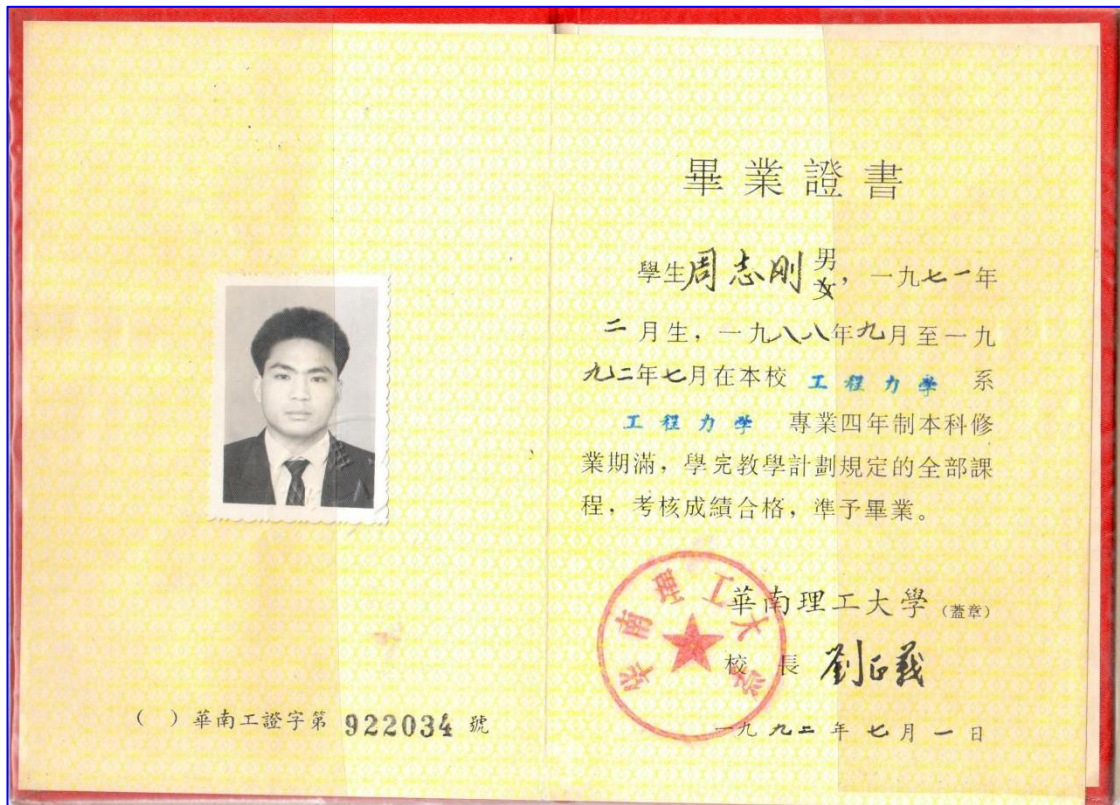 畢業證書
學生周志刚男女，一九七一年
二月生，一九八八年九月至一九
九二年七月在本校 工程力学 系
工程力学 專業四年制本科修
業期滿，學完教學計劃規定的全部課
程，考核成績合格，準予畢業。
華南理工大學
華南理工大學（蓋章）
校長 劉正義
一九九二年七月一日
（ ）華南工證字第 922034 號